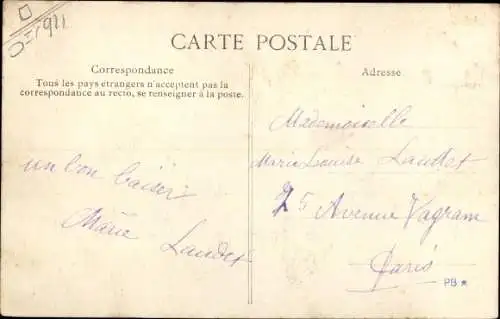 1911
CARTE POSTALE
Correspondance
Tous les pays étrangers n'acceptent pas la
correspondance au recto, se renseigner à la poste.
un bon baiser
Marie
Laudet
Adresse
Mademoiselle
Marie Louise Laudet
25 Avenue Wagram
Paris
PB★